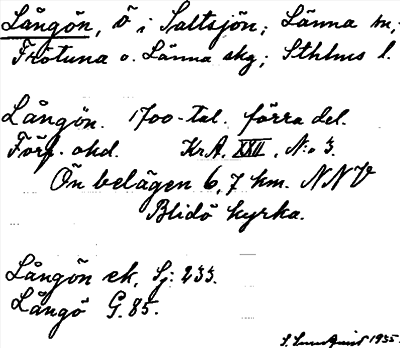 Långön, ö i Saltsjön; Länna sn,
Frötuna o. Länna skg; Sthlms l.
Långön. 1700-tal. förra del.
Förf. okd. Kr.A. XXII, N:o 3.
Ön belägen 6,7 km. NNV
Blidö kyrka.
Långön ek, Sj: 233.
Långö G. 85.
1935.